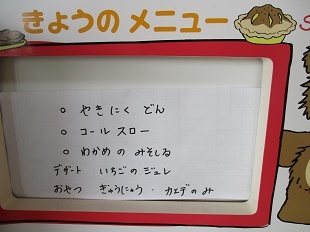 きょうの メニュー
○ やきにく どん
○ コールスロー
○ わかめの みそしる
デザート いちごの ジュレ
おやつ ぎゅうにゅう・カエデのみ